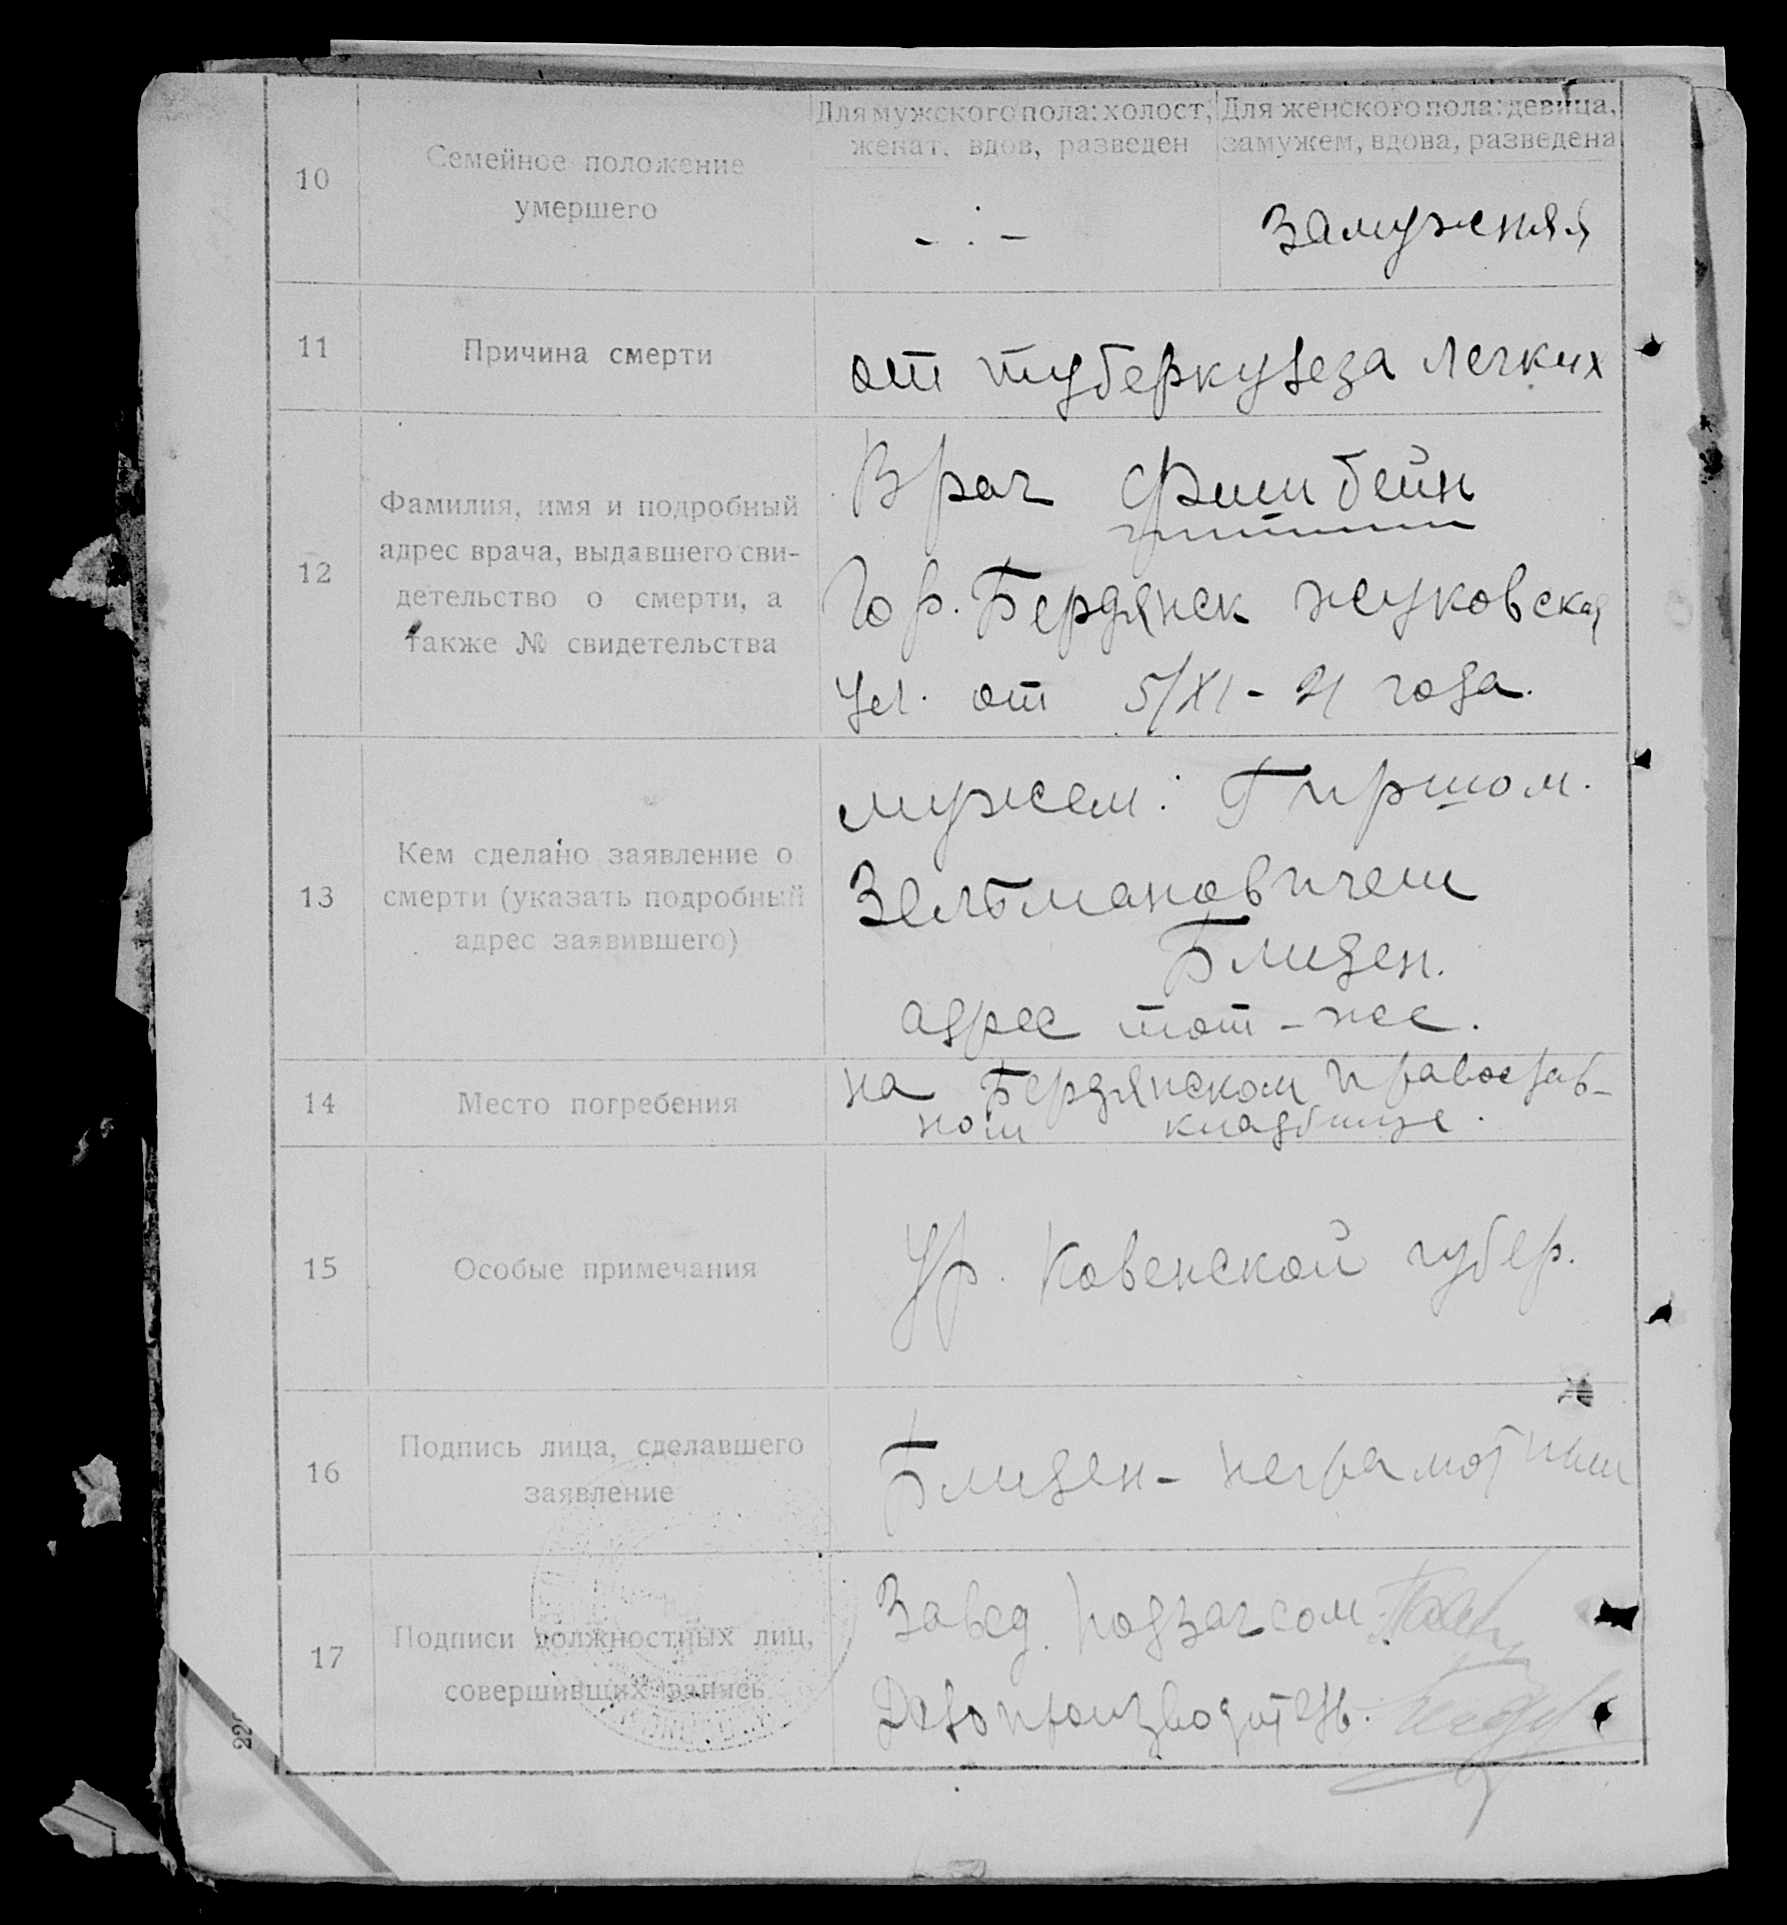 Для мужского пола: холост, женат, вдов, разведен
Для женского пола: девица, замужем, вдова, разведена
10
Семейное положение
умершего
- : -
замужняя
11
Причина смерти
от туберкулеза легких
12
Фамилия, имя и подробный
адрес врача, выдавшего сви-
детельство о смерти, а
также № свидетельства
Врач Фишбейн
Гор. Бердянск жуковская
ул. от 5/XI - 21 года.
13
Кем сделано заявление о
смерти (указать подробный
адрес заявившего)
мужем: Гиршом.
Зельмановичем
Блиден.
адрес тот-же.
14
Место погребения
на Бердянском православ-
ном кладбище.
15
Особые примечания
Ур. Ковенской губер.
16
Подпись лица, сделавшего
заявление
Блиден - неграмотный
17
Подписи должностных лиц,
совершивших запись
Завед. подзагсом
Делопроизводитель.